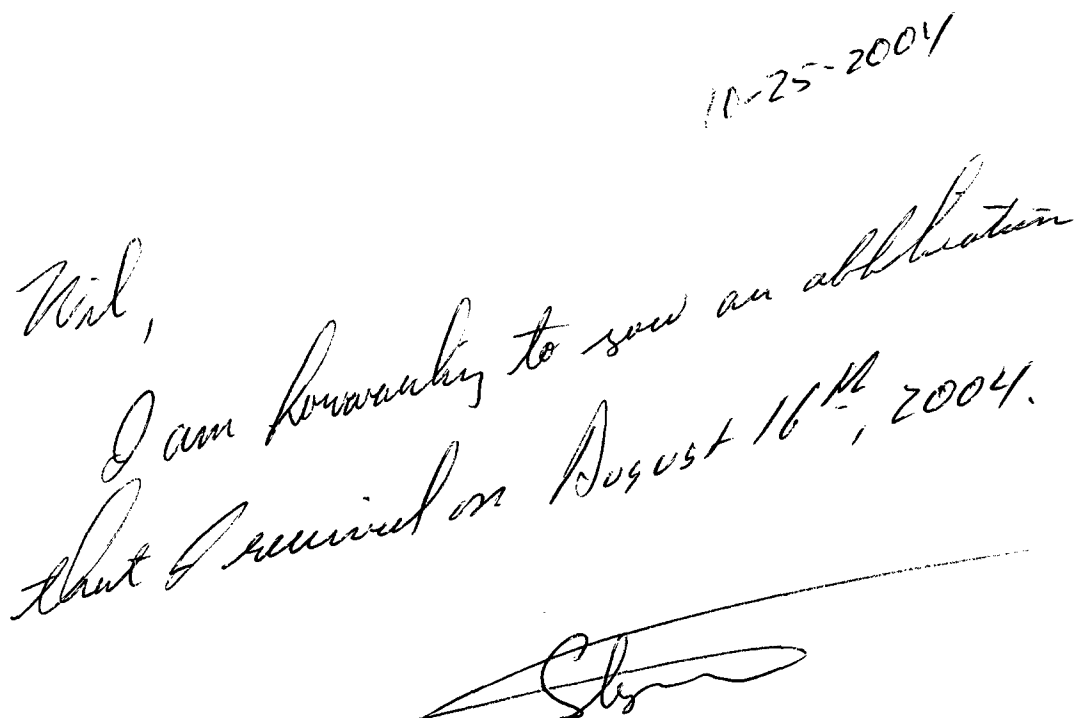 10-25-2004
Neil,
I am forwarding to you an application
that I received on August 16th, 2004.